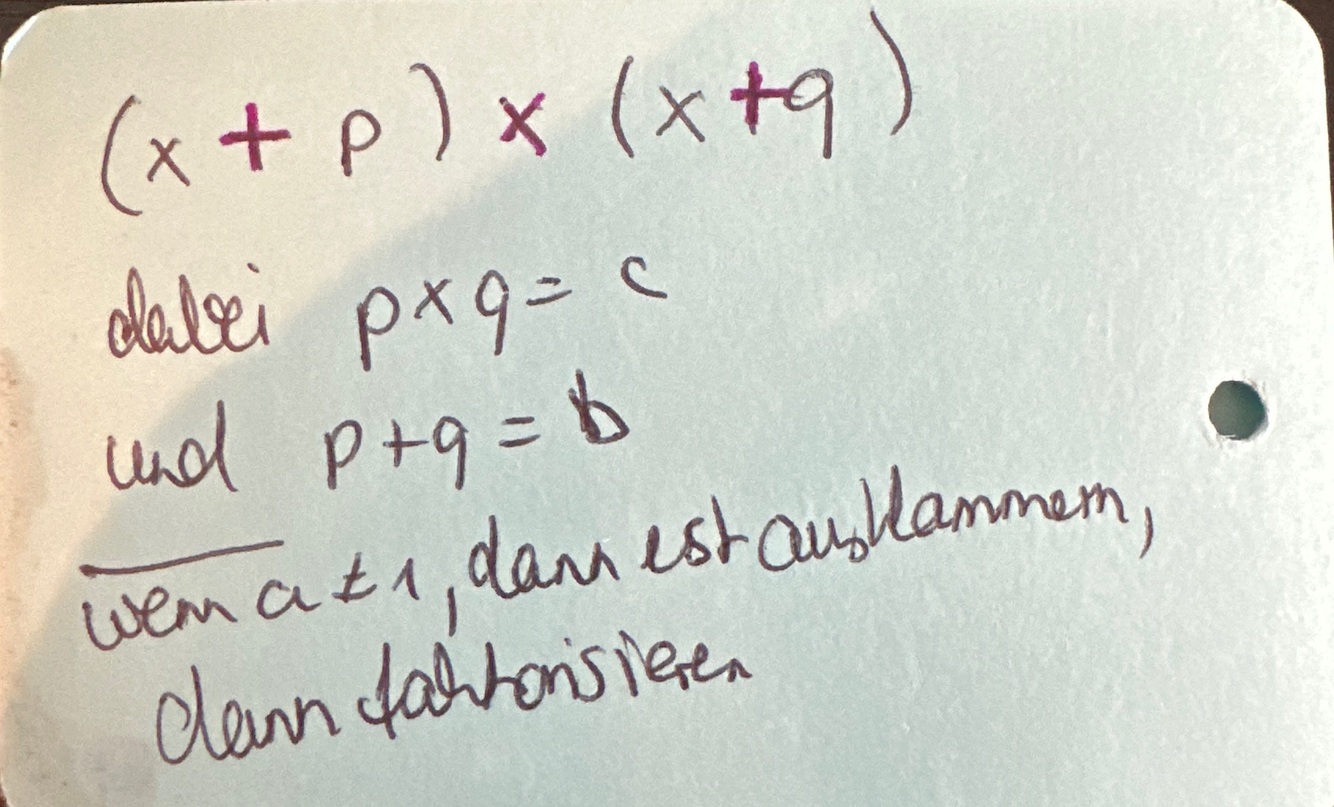 (x + p) x (x+q)
dabei p x q = c
und p+q = b
wenn a ≠ 1, dann erst ausklammern,
dann faktorisieren